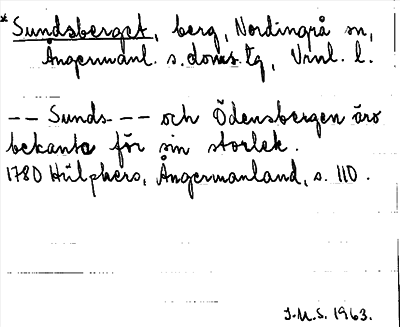 *Sundsberget, berg, Nordingrå sn,
Ångermanl. s. doms. tg, Vrnl. l.
-- Sunds- -- och Ödensbergen äro
bekanta för sin storlek.
1780 Hülphers, Ångermanland, s. 110.
J.M.S. 1963.